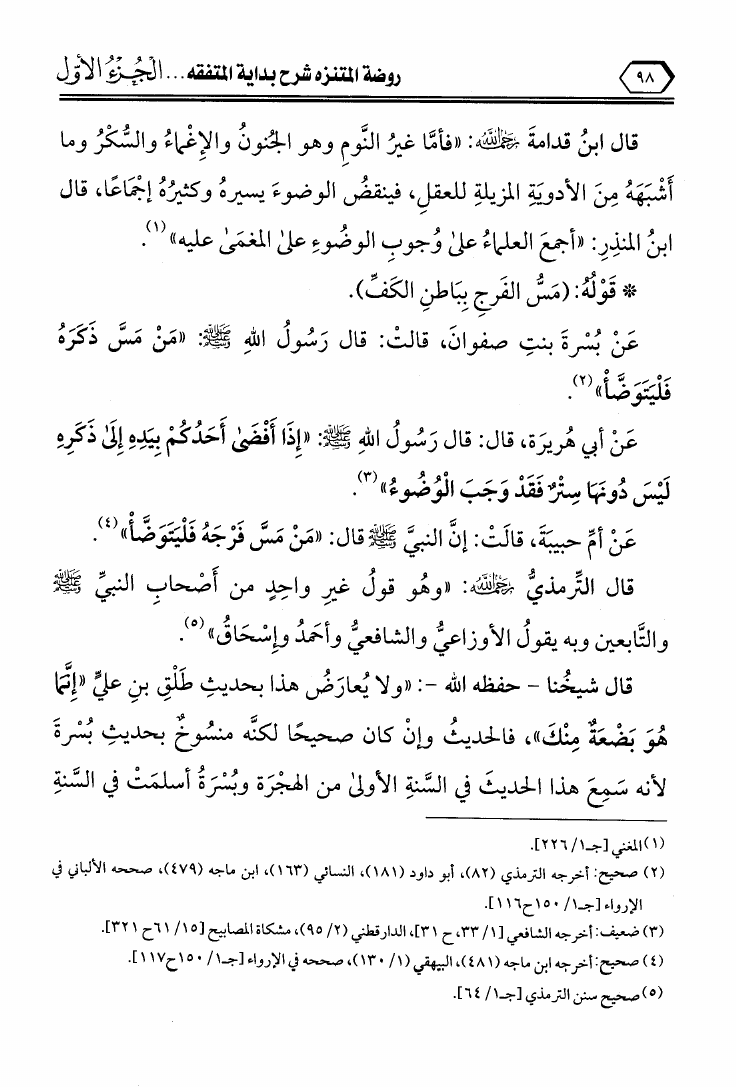 ٩٨
روضة المتنزه شرح بداية المتفقه ... الجُزءُ الأوّل
قال ابنُ قدامةَ رحمه الله: «فأمَّا غيرُ النَّومِ وهو الجنونُ والإغْماءُ والسُّكْرُ وما
أَشْبَهَهُ مِنَ الأدويَةِ المزيلةِ للعقلِ، فينقضُ الوضوءَ يسيرهُ وكثيرُهُ إجْمَاعًا، قال
ابنُ المنذِرِ: «أجمعَ العلماءُ علىٰ وُجوبِ الوضُوءِ علىٰ المغمَىٰ عليه»(١).
* قَوْلُهُ: (مَسُّ الفَرجِ بِبَاطنِ الكَفِّ).
عَنْ بُسْرةَ بنتِ صفوانَ، قالتْ: قال رَسُولُ اللهِ ﷺ: «مَنْ مَسَّ ذَكَرَهُ
فَلْيَتَوَضَّأْ»(٢).
عَنْ أبي هُريرَة، قال: قال رَسُولُ اللهِ ﷺ: «إِذَا أَفْضَىٰ أَحَدُكُمْ بِيَدِهِ إِلَىٰ ذَكَرِهِ
لَيْسَ دُونَهَا سِتْرٌ فَقَدْ وَجَبَ الْوُضُوءُ»(٣).
عَنْ أمِّ حبيبَةَ، قالَتْ: إنَّ النبيَّ ﷺ قال: «مَنْ مَسَّ فَرْجَهُ فَلْيَتَوَضَّأْ»(٤).
قال التِّرمذيُّ رحمه الله: «وهُو قولُ غيرِ واحِدٍ من أَصْحابِ النبيِّ ﷺ
والتَّابعين وبه يقولُ الأوزاعيُّ والشافعيُّ وأحمَدُ وإسْحَاقُ»(٥).
قال شيخُنا - حفظه الله -: «ولا يُعارَضُ هذا بحديثِ طَلْقِ بنِ عليٍّ «إِنَّمَا
هُوَ بَضْعَةٌ مِنْكَ»، فالحديثُ وإنْ كان صحيحًا لكنَّه منسُوخٌ بحديثِ بُسْرةَ
لأنه سَمِعَ هذا الحديثَ في السَّنةِ الأولىٰ من الهجْرَة وبُسْرَةُ أسلمَتْ في السَّنةِ
(١) المغني [جـ١/ ٢٢٦].
(٢) صحيح: أخرجه الترمذي (٨٢)، أبو داود (١٨١)، النسائي (١٦٣)، ابن ماجه (٤٧٩)، صححه الألباني في
الإرواء [جـ١/ ١٥٠ح١١٦].
(٣) ضعيف: أخرجه الشافعي [١/ ٣٣، ح ٣١]، الدارقطني (٢/ ٩٥)، مشكاة المصابيح [١٥/ ٦١ح ٣٢١].
(٤) صحيح: أخرجه ابن ماجه (٤٨١)، البيهقي (١/ ١٣٠)، صححه في الإرواء [جـ١/ ١٥٠ح١١٧].
(٥) صحيح سنن الترمذي [جـ١/ ٦٤].